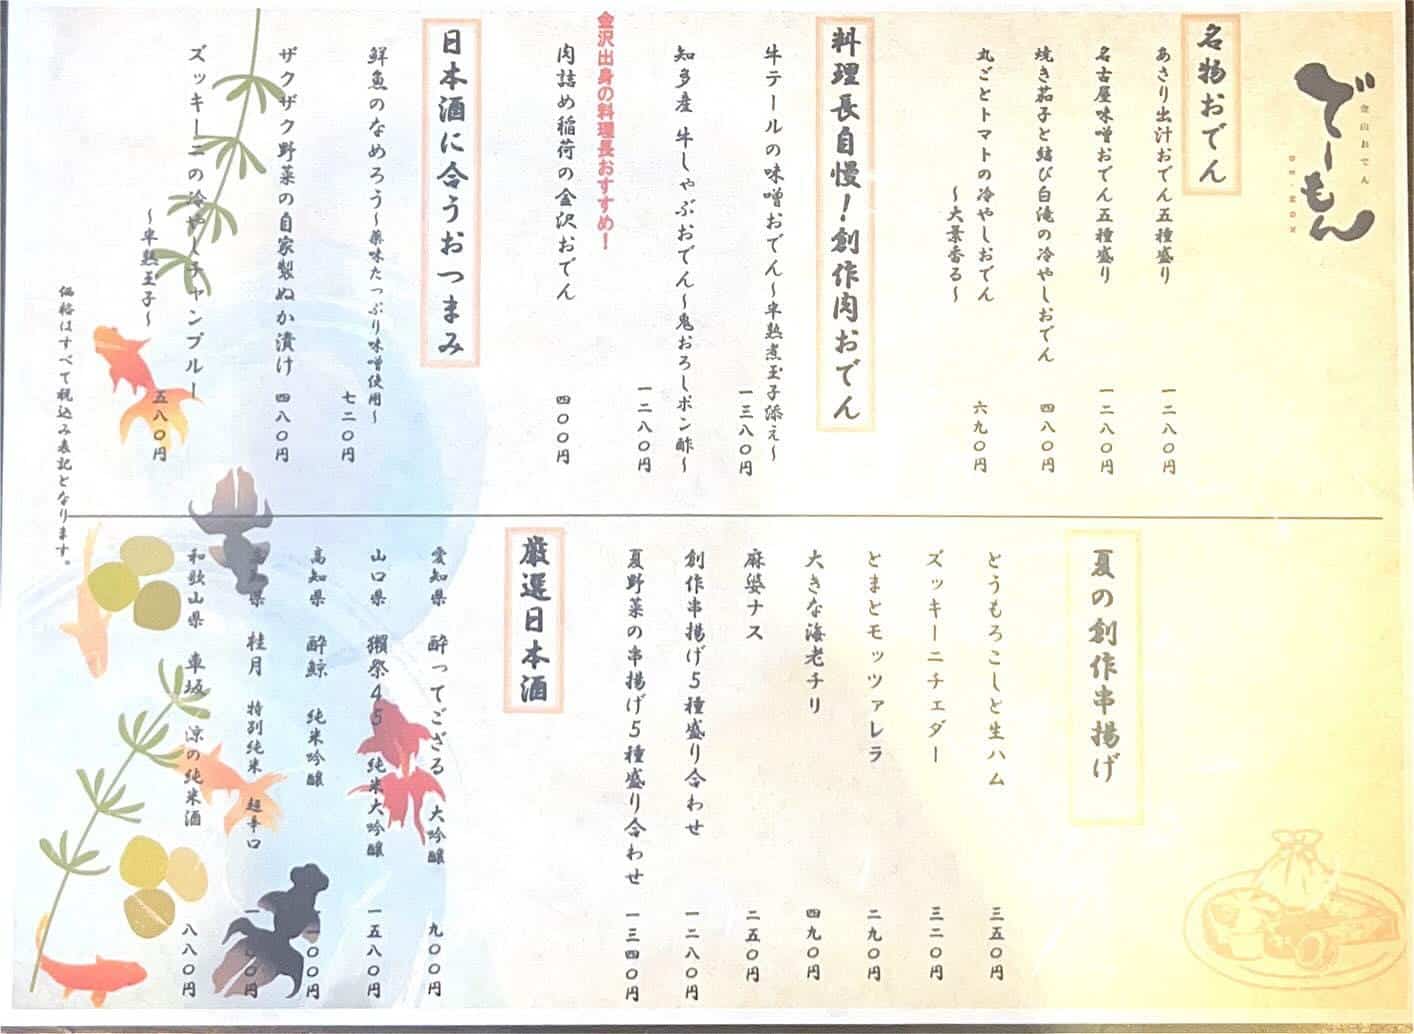 金山おでん
でーもん
名物おでん
あさり出汁おでん五種盛り
一二八〇円
名古屋味噌おでん五種盛り
一二八〇円
焼き茄子と結び白滝の冷やしおでん
四八〇円
丸ごとトマトの冷やしおでん
～大葉香る～
六九〇円
料理長自慢！創作肉おでん
牛テールの味噌おでん～半熟煮玉子添え～
一三八〇円
知多産 牛しゃぶおでん～鬼おろしポン酢～
一二八〇円
金沢出身の料理長おすすめ！
肉詰め稲荷の金沢おでん
四〇〇円
日本酒に合うおつまみ
鮮魚のなめろう～薬味たっぷり味噌使用～
七二〇円
ザクザク野菜の自家製ぬか漬け
四八〇円
ズッキーニの冷やしチャンプルー
～半熟玉子～
五八〇円
価格はすべて税込み表記となります。
夏の創作串揚げ
とうもろこしと生ハム
三五〇円
ズッキーニチェダー
三二〇円
とまとモッツァレラ
二九〇円
大きな海老チリ
四九〇円
麻婆ナス
二五〇円
創作串揚げ5種盛り合わせ
一二八〇円
夏野菜の串揚げ5種盛り合わせ
一三四〇円
厳選日本酒
愛知県 酔ってござる 大吟醸
九〇〇円
山口県 獺祭45 純米大吟醸
一五八〇円
高知県 酔鯨 純米吟醸
〇〇円
高知県 桂月 特別純米 超辛口
〇円
和歌山県 車坂 涼の純米酒
八八〇円